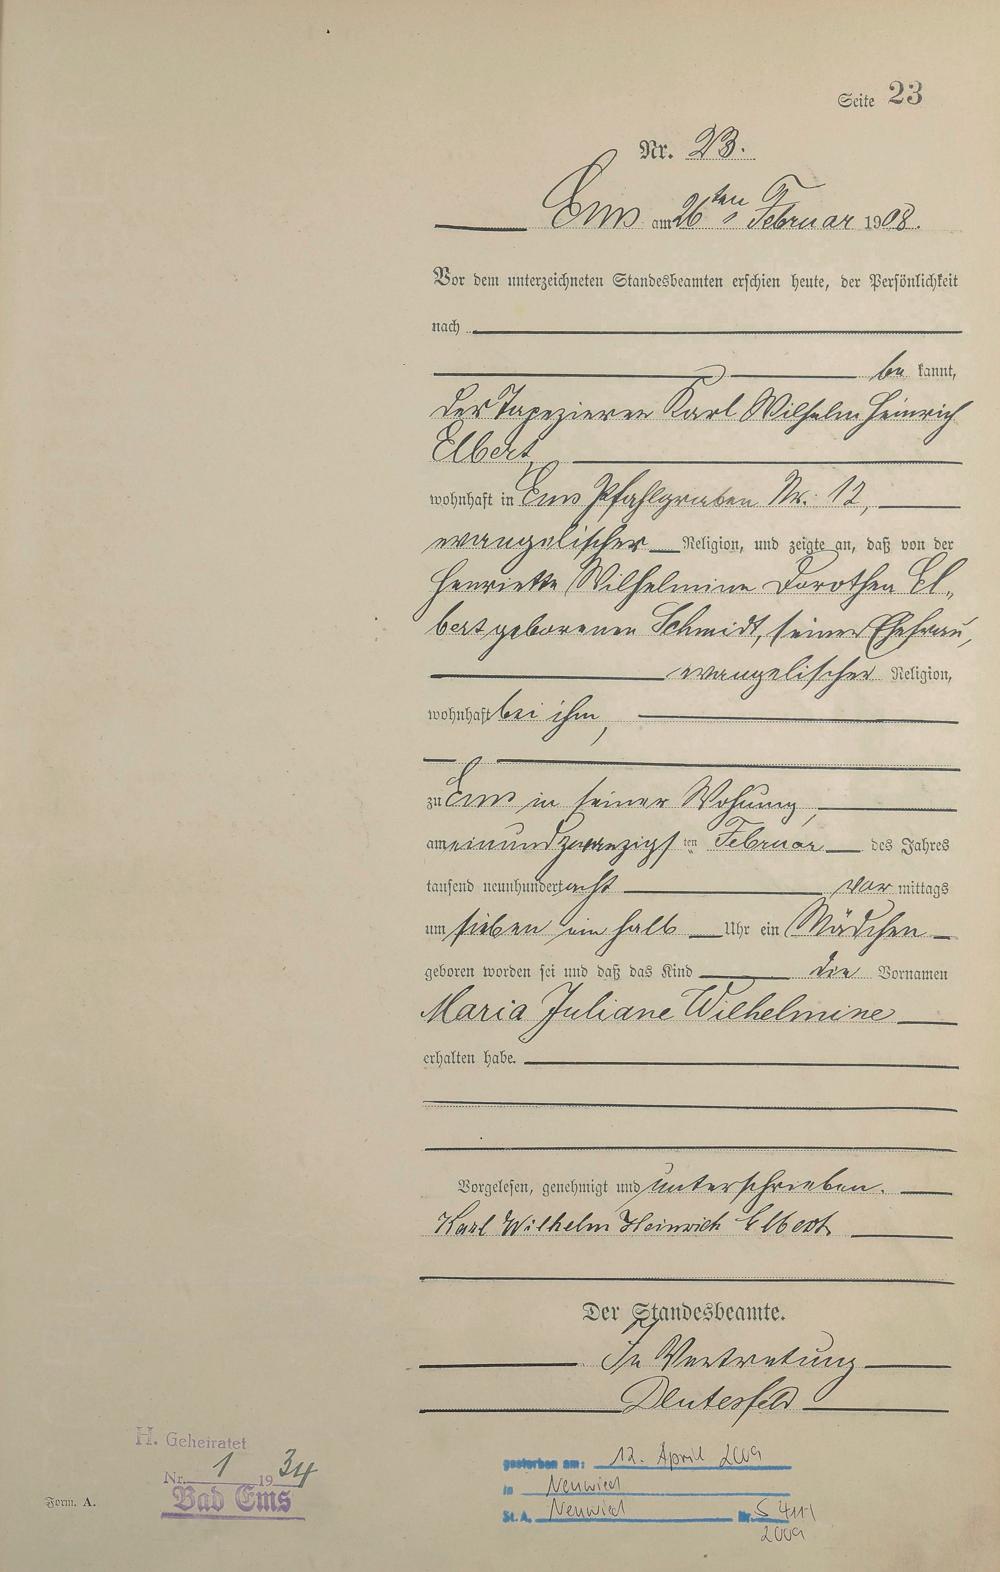 Seite 23
Nr. 23.
Ems am 26ten Februar 1908.
Vor dem unterzeichneten Standesbeamten erschien heute, der Persönlichkeit
nach
be kannt,
der Tapezierer Karl Wilhelm Heinrich
Elbert,
wohnhaft in Ems Pfahlgraben Nr. 12,
evangelischer Religion, und zeigte an, daß von der
Henriette Wilhelmine Dorothea El„
bert geborenen Schmidt, seiner Ehefrau,
evangelischer Religion,
wohnhaft bei ihm,
zu Ems in seiner Wohnung,
am einundzwanzigsten Februar des Jahres
tausend neunhundert acht vor mittags
um sieben ein halb Uhr ein Mädchen
geboren worden sei und daß das Kind die Vornamen
Maria Juliane Wilhelmine
erhalten habe.
Vorgelesen, genehmigt und unterschrieben.
Karl Wilhelm Heinrich Elbert
Der Standesbeamte.
In Vertretung
H. Geheiratet
Nr. 1 1934
Bad Ems
Form. A.
gestorben am: 12. April 2009
in Neuwied
St. A. Neuwied Nr. S 411
2009